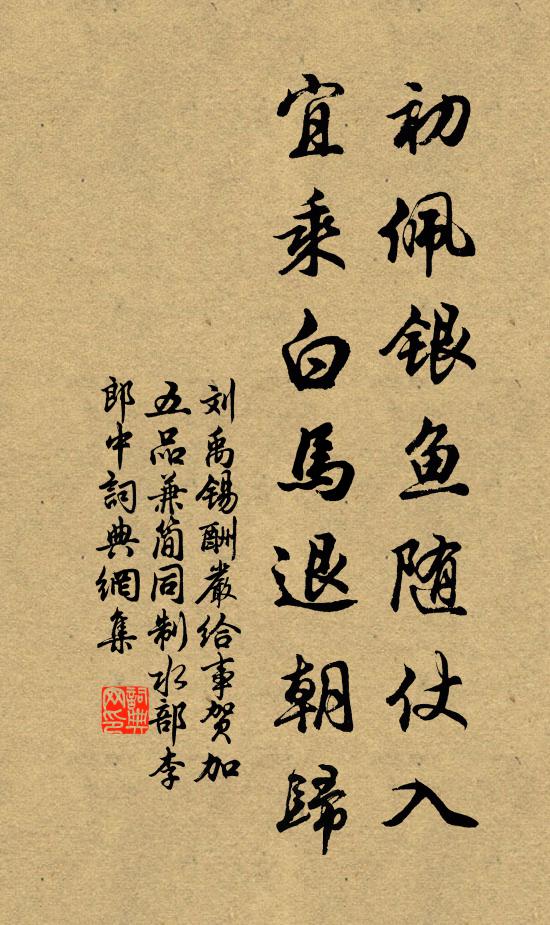 初佩银鱼随仗入
宜乘白馬退朝歸
刘禹锡酬嚴给事贺加
五品兼简同制水部李
郎中詞典網集
詞典网印